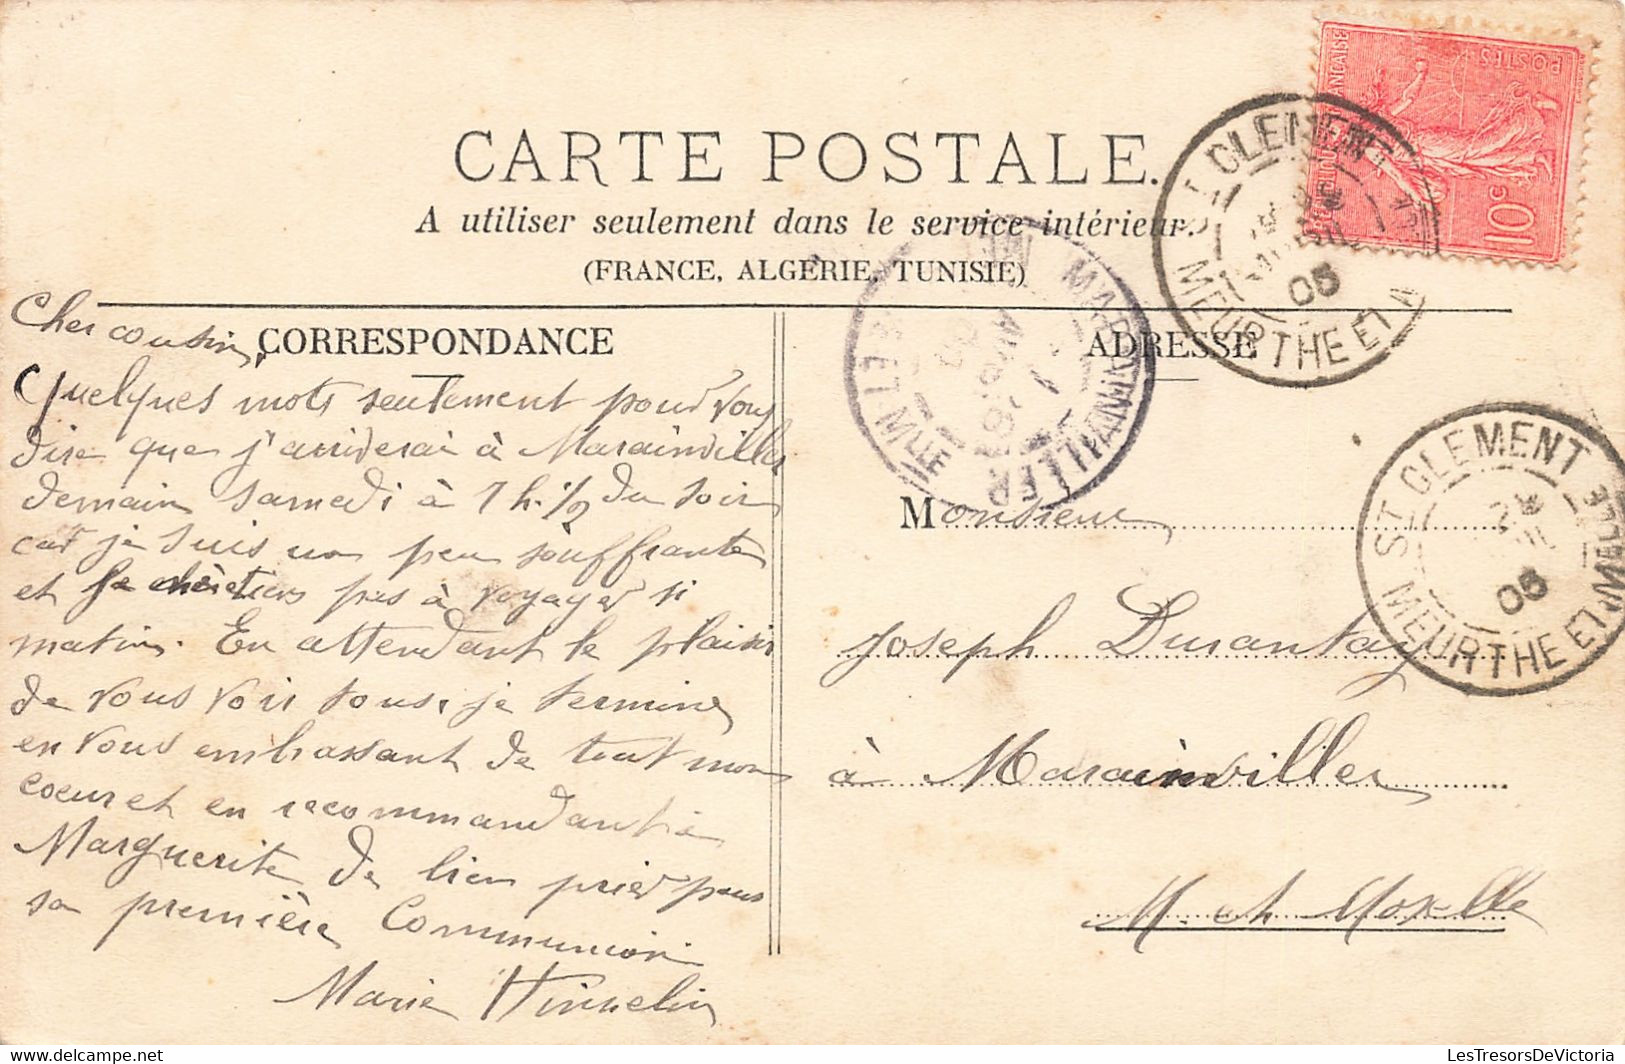 CARTE POSTALE.
A utiliser seulement dans le service intérieur.
(FRANCE, ALGÉRIE, TUNISIE)
CORRESPONDANCE
Cher cousin,
Quelques mots seulement pour vous
dire que j'arriverai à Marainviller
demain samedi à 7 h. 1/2 du soir
car je suis un peu souffrante
et je tiens pas à voyager si
matin. En attendant le plaisir
de vous voir tous, je termine
en vous embrassant de tout mon
coeur et en recommandant à
Marguerite de bien prier pour
sa première Communion
Marie Hinnelin
ADRESSE
Monsieur
Joseph Durantay
à Marainviller
M. et Moselle
ST CLEMENT
05
MEURTHE ET M
ST CLEMENT
05
MEURTHE ET MELLE
MARAINVILLER
RÉPUBLIQUE FRANÇAISE
POSTES
10c
LesTresorsDeVictoria